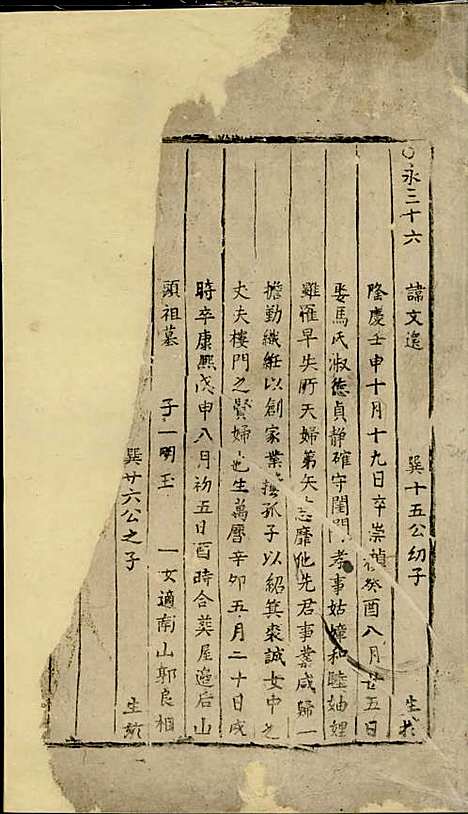 ○永三十六 諱文遠 巽十五公幼子 生於
隆慶壬申十月十九日卒崇禎癸酉八月廿五日
娶馬氏淑德貞静確守閨門孝事姑嫜和睦妯娌
雖罹早失所天婦第矢志靡他先君事業咸歸一
擔勤織紝以創家業撫孤子以紹箕裘誠女中之
丈夫樓門之賢婦也生萬曆辛卯五月二十日戌
時卒康熙戊申八月初五日酉時合葬屋邉后山
頭祖墓 子一明玉 一女適南山郭良相
巽廿六公之子 生於